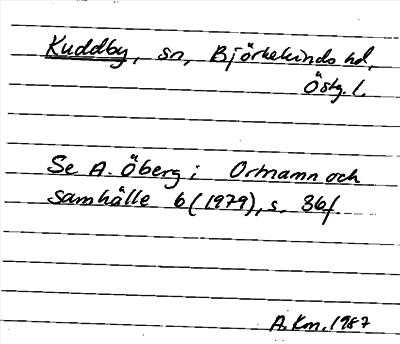 Kuddby, sn, Björkekinds hd,
Östg. l.
Se A. Öberg i Ortnamn och
samhälle 6 (1979), s. 36f.
A.Km. 1987